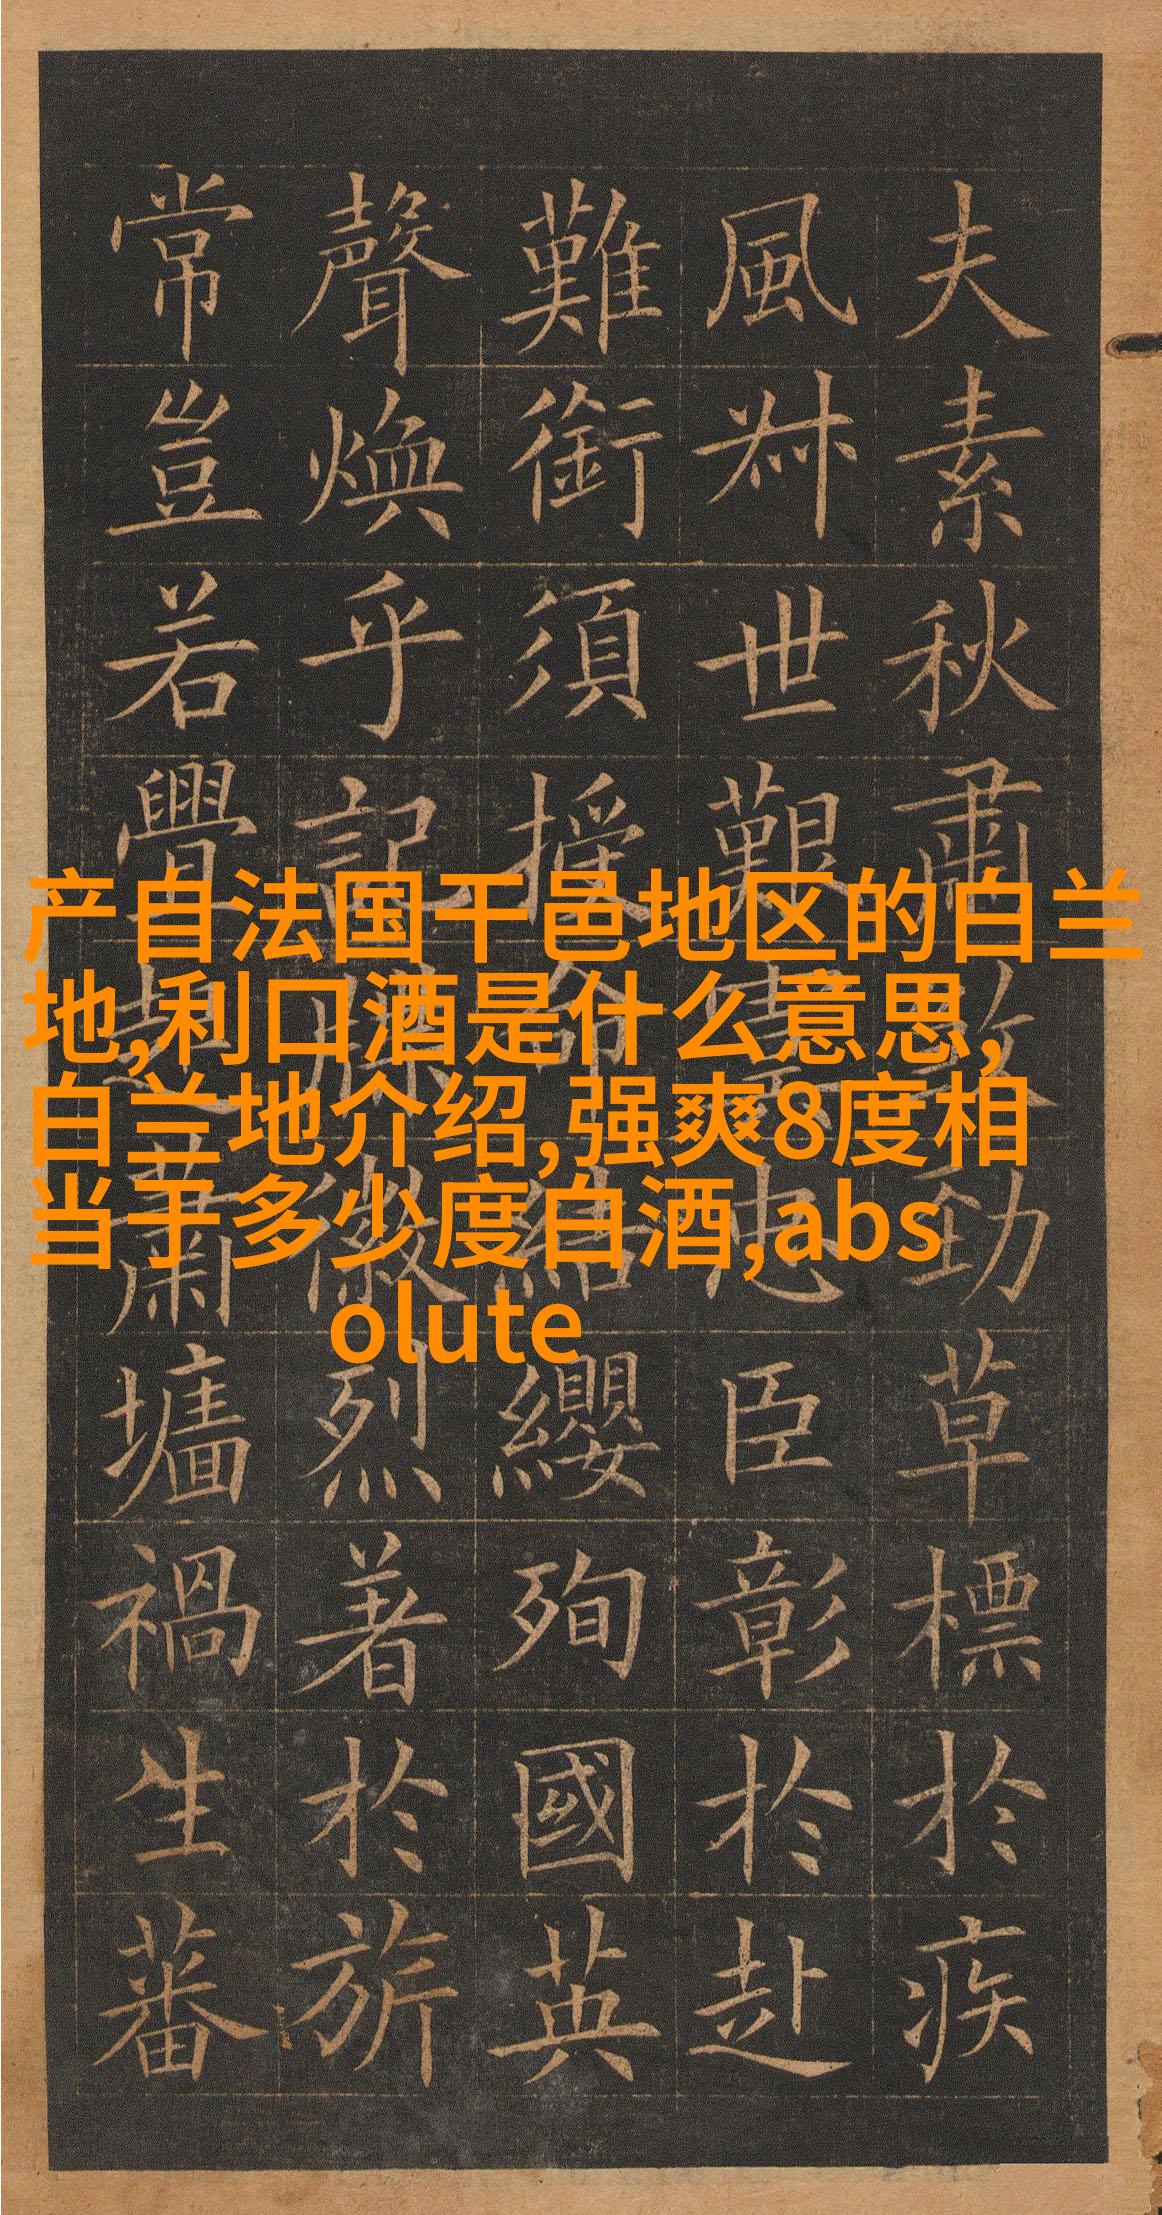 夫素秋肅煞勁草標於疾
風叔世艱虞忠臣彰於赴
難銜須授命結纓殉國英
聲煥乎記牒徽烈著於旂
常豈若舋起蕭墻禍生蕃
产自法国干邑地区的白兰
地,利口酒是什么意思,
白兰地介绍,强爽8度相
当于多少度白酒,abs
olute